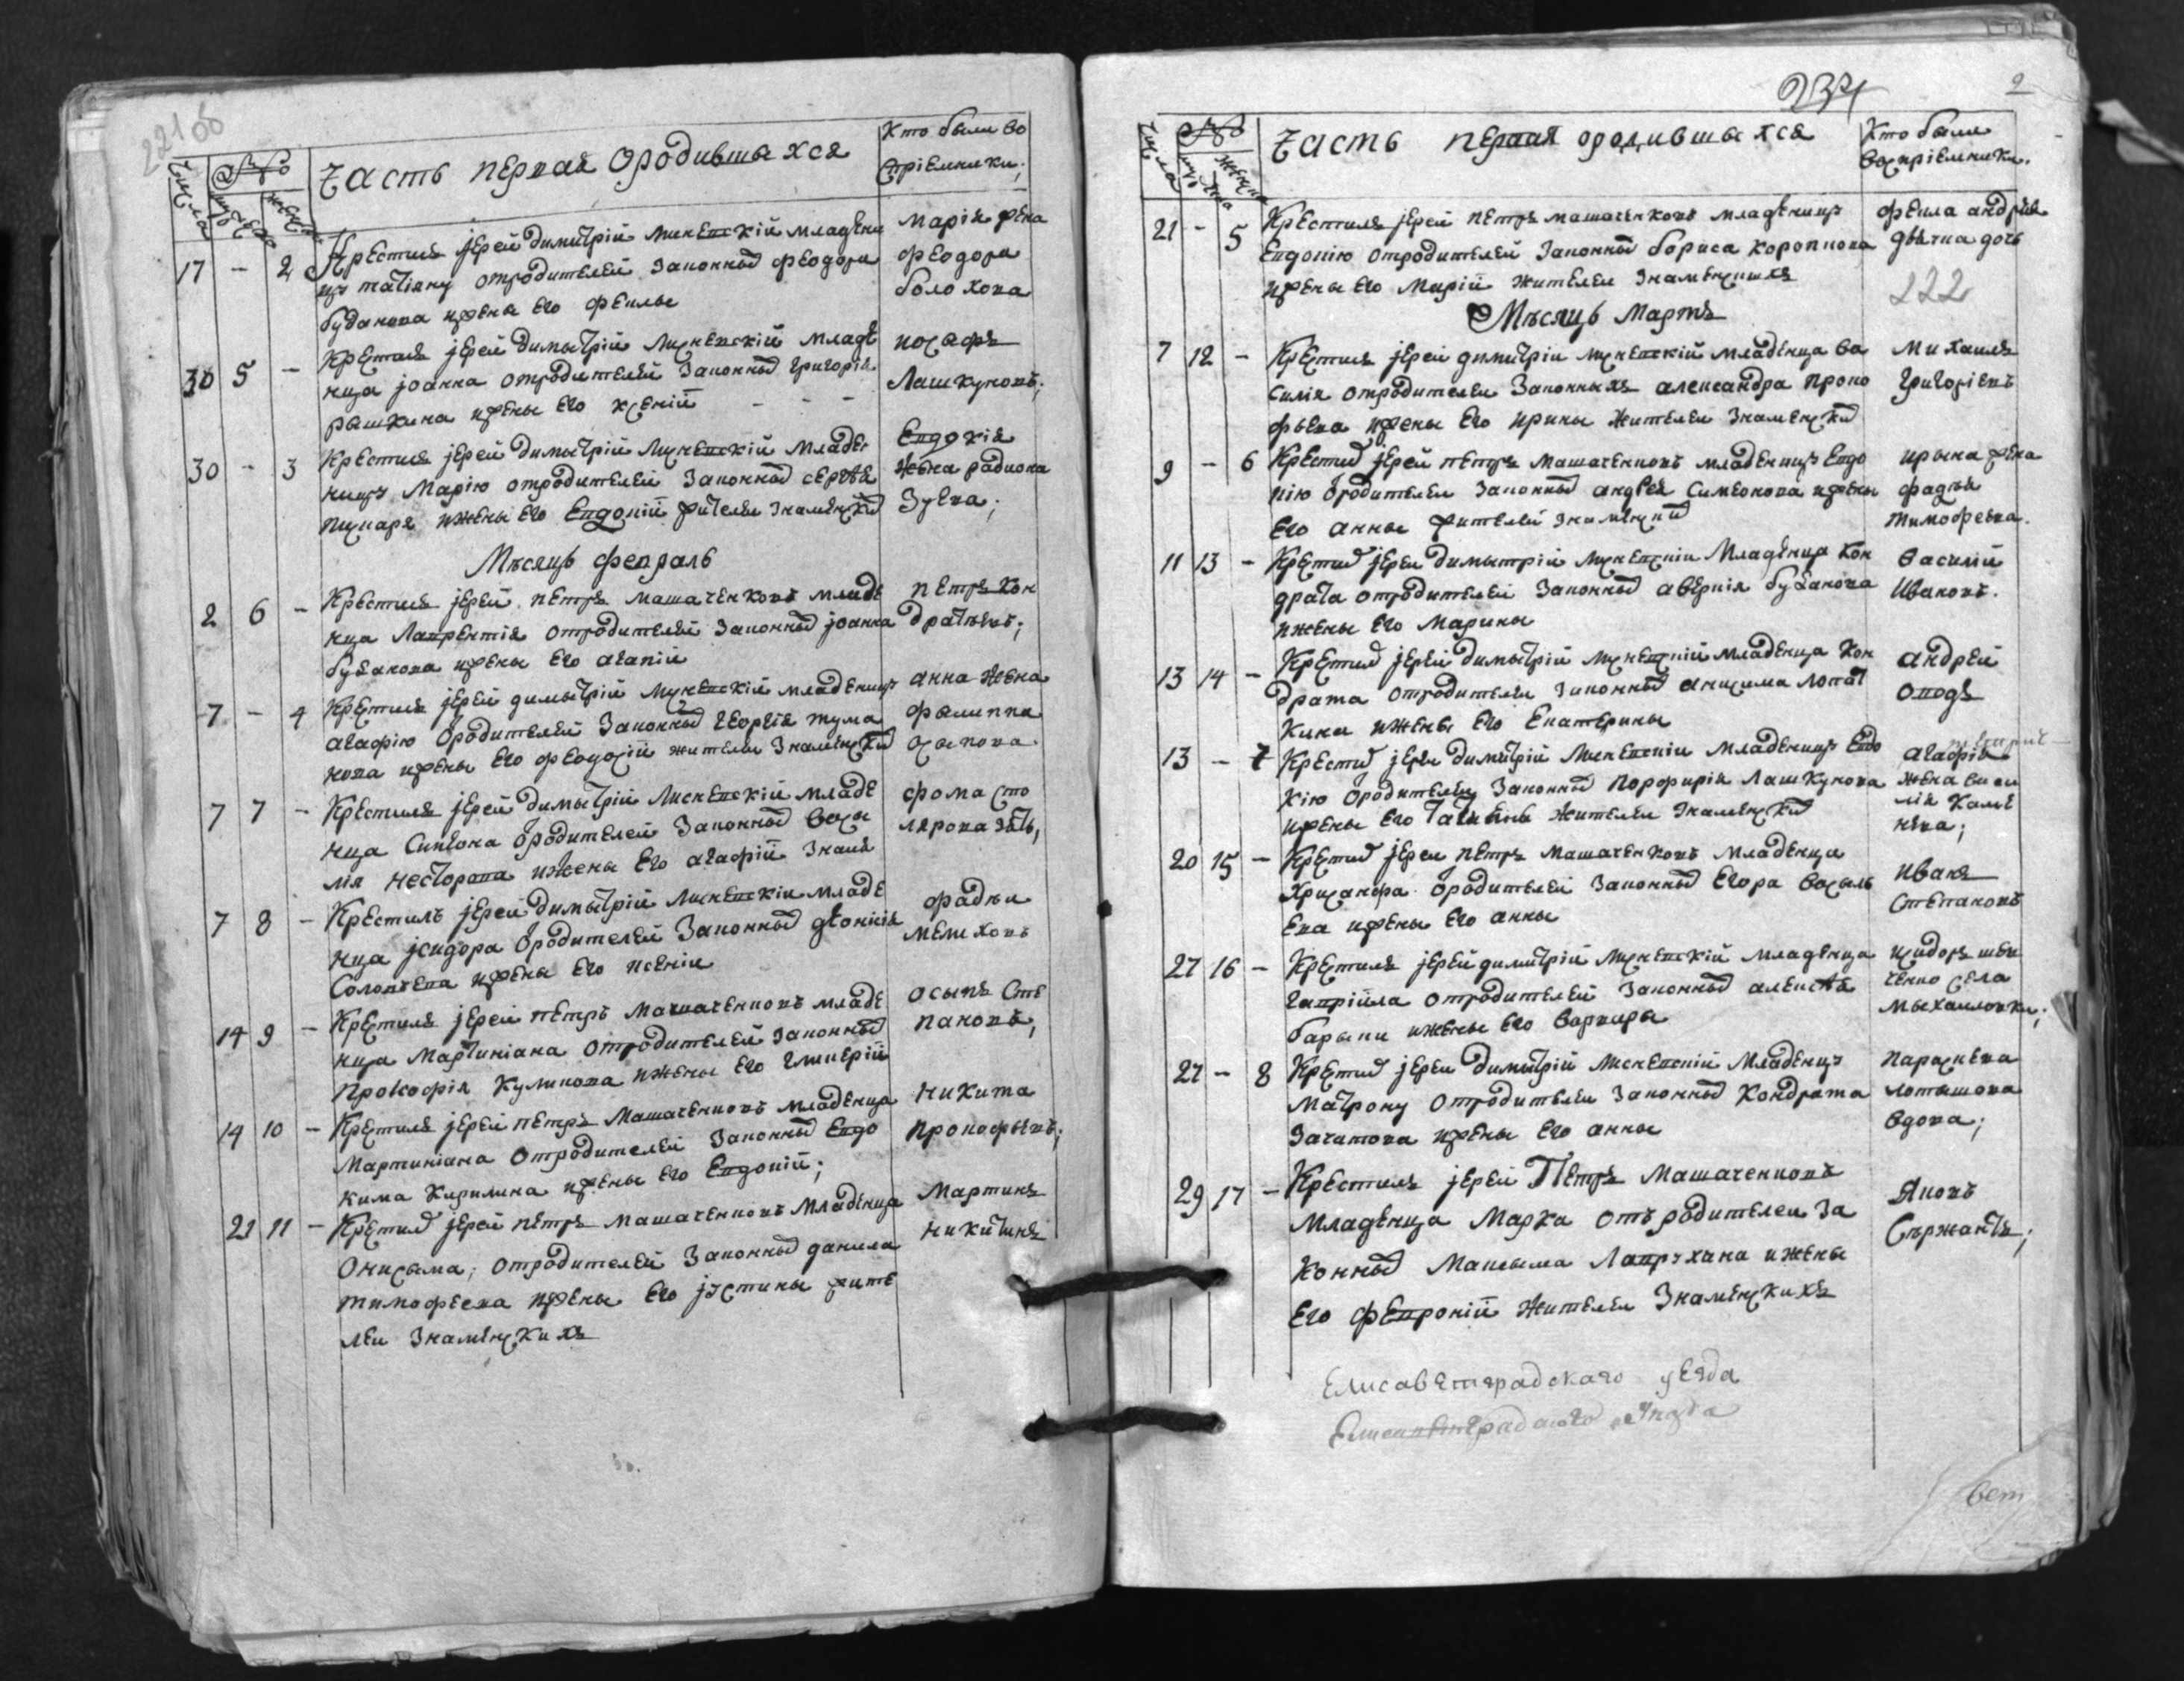 221 об
Числа
№
муж
женск
Часть первая ородившыхся
Кто были во
спріемники;
17 - 2 Крестилъ јерей димитрій Лисневскій младени
цу татіяну отродителей законныхъ феодора
буданова ижены его феклы
марія жена
феодора
болохова
30 5 - Крестилъ јерей димытрій Лисневскій младе
нца јоанна отродителей законныхъ григорія
рашкина ижены его ксеніи - - -
іосифъ
Лашкуновъ;
30 - 3 Крестилъ јерей димытрій Лисневскій младе
ницу Марію отродителей законныхъ сергѣя
пиунаря ижены его Евдокіи жителей знаменскихъ
Евдокія
жена радиона
Зуева;
Мѣсяцъ февраль
2 6 - Крестилъ јерей петръ машаченковъ младе
нца Лаврентія отродителей законныхъ јоанна
буданова ижены его агапіи
петръ кон
дратьевъ;
7 - 4 Крестилъ јерей димытрій Лисневскій младеницу
агафію ѿродителей законныхъ георгія тума
нова ижены его феодосіи жителей знаменскихъ
анна жена
филиппа
осипова.
7 7 - Крестилъ јерей димытрій Лисневскій младе
нца Симеона ѿродителей законныхъ васи
лія несторова ижены его агафіи знаме
фома сто
лярова зять,
7 8 - Крестилъ јерей димытрій Лисневскій младе
нца јсидора ѿродителей законныхъ діонисія
Соловьева ижены его ксеніи
фадѣи
мелиховъ
14 9 - Крестилъ јерей петръ машаченковъ младе
нца Мартиніана отродителей законныхъ
прокофія куликова ижены его гликеріи
осыпъ сте
пановъ;
14 10 - Крестилъ јерей петръ машаченковъ младенца
мартиніана отродителей законныхъ евдо
кима кирилина ижены его Евдокіи;
никита
прокофьевъ;
21 11 - Крестилъ јерей петръ машаченковъ младенца
Онисыма; отродителей законныхъ данила
тимофеева ижены его јустины жите
лей знаменскихъ
мартинъ
никитинъ
234
2
Числа
№
муж
женск
Часть первая ородившыхся
Кто были
воспріемники.
21 - 5 Крестилъ јерей петръ машаченковъ младеницу
Евдокію отродителей законныхъ бориса коропнова
ижены его Маріи жителей знаменскихъ
фекла андрѣя
дьячка дочь
222
Мѣсяцъ мартъ
7 12 - Крестилъ јерей димитріи Лисневскій младенца ва
силія отродителей законныхъ александра проко
фьева ижены его ирины жителей знаменскихъ
михаилъ
григоріевъ
9 - 6 Крестилъ јерей петръ машаченковъ младеницу Евдо
кію ѿродителей законныхъ андрея Симеонова ижены
его анны жителей знаменскихъ
ирына жена
фадѣя
тимофеева.
11 13 - Крестилъ јереи димытрій Лисневскій младенца кон
драта отродителей законныхъ аверкія буданова
ижены его Марины
василій
Ивановъ.
13 14 - Крестилъ јереи димытрій Лисневскій младенца кон
драта отродителей законныхъ анисима лопат
кина ижены его Екатерины
андрей
13 - 7 Крестилъ јереи димитрій Лисневскіи младеницу Евдо
кію ѿродителей законныхъ порфирія Лашкунова
ижены его Татияны жителей знаменскихъ
агафія
жена васи
лія каме
нева;
20 15 - Крестилъ јереи петръ машаченковъ младенца
хрисанфа ѿродителей законныхъ егора василь
ева ижены его анны
иванъ
степановъ
27 16 - Крестилъ јерей димитрій Лисневскій младенца
гавріила отродителей законныхъ алексѣя
барыки ижены его варвары
исидоръ шев
ченко села
мыхаиловки;
27 - 8 Крестилъ јереи димитрій Лисневскій младеницу
матрону отродителей законныхъ кондрата
зачатова ижены его анны
параскева
лоташова
вдова;
29 17 - Крестилъ јереи петръ машаченковъ
младенца марка отъ родителей за
конныхъ максыма лаврухина ижены
его февроніи жителей знаменскихъ
яковъ
сержантъ;
Елисаветградскаго уезда
Елисаветградского уезда